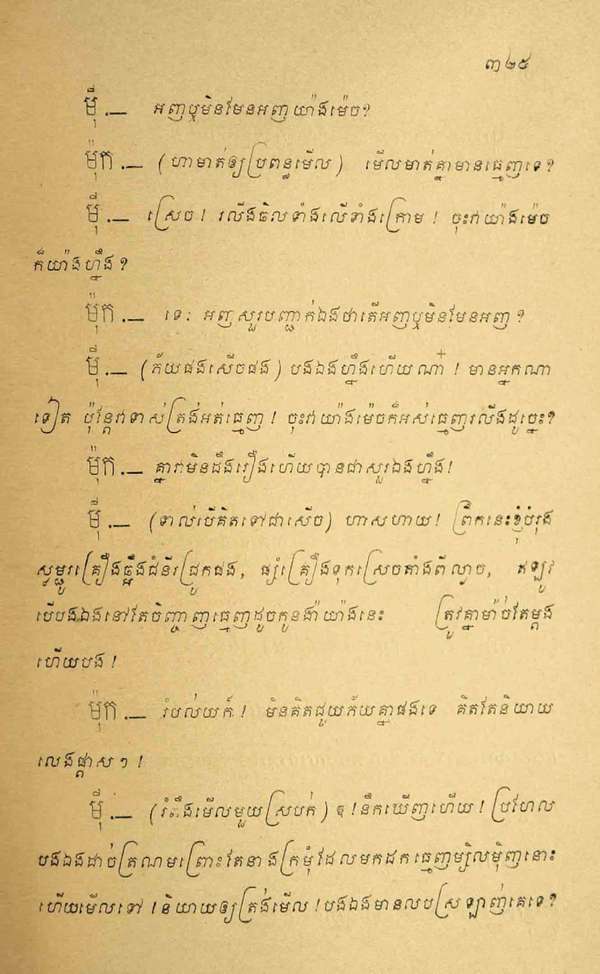 ៣២៥
ម៉ី.__ អញឬមិនមែនអញយ៉ាងម៉េច?
ម៉ុក.__ (ហាមាត់ឲ្យប្រពន្ធមើល) មើលមាត់គ្នាមានធ្មេញទេ?
ម៉ី.__ ស្រេច! រលីងធិលទាំងលើទាំងក្រោម! ចុះវាយ៉ាងម៉េច
ក៏យ៉ាងហ្នឹង?
ម៉ុក.__ ទេៈ អញសួរបញ្ជាក់ឯងថាតើអញឬមិនមែនអញ?
ម៉ី.__ (ភ័យផងសើចផង) បងឯងហ្នឹងហើយណា៎! មានអ្នកណា
ទៀត ប៉ុន្តែវាទាស់ត្រង់អត់ធ្មេញ! ចុះវាយ៉ាងម៉េចក៏អស់ធ្មេញរលីងដូច្នេះ?
ម៉ុក.__ គ្នាវាមិនដឹងរឿងហើយបានជាសួរឯងហ្នឹង!
ម៉ី.__ (ទាល់បើគិតទៅជាសើច) ហាសហាយ! ព្រឹកនេះខ្ញុំបំរុង
សម្លរគ្រឿងឆ្អឹងជំនីរជ្រូកផង, ផ្សំគ្រឿងទុកស្រេចតាំងពីល្ងាច, ឥឡូវ
បើបងឯងនៅតែចិញ្ចាញធ្មេញដូចកូនង៉ាយ៉ាងនេះ ត្រូវគ្នាម៉ាច់តែម្ដង
ហើយបង!
ម៉ុក.__ រំបល់យក៍! មិនគិតជួយភ័យគ្នាផងទេ គិតតែនិយាយ
លេងផ្ដាសៗ!
ម៉ី.__ (រំពឹងមើលមួយស្របក់) ឲ! នឹកឃើញហើយ! ប្រហែល
បងឯងដាច់ត្រណមព្រោះតែនាងក្រមុំដែលមកដកធ្មេញម្សិលម៉ិញនោះ
ហើយមើលទៅ! និយាយឲ្យត្រង់មើល! បងឯងមានលបស្រឡាញ់គេទេ?